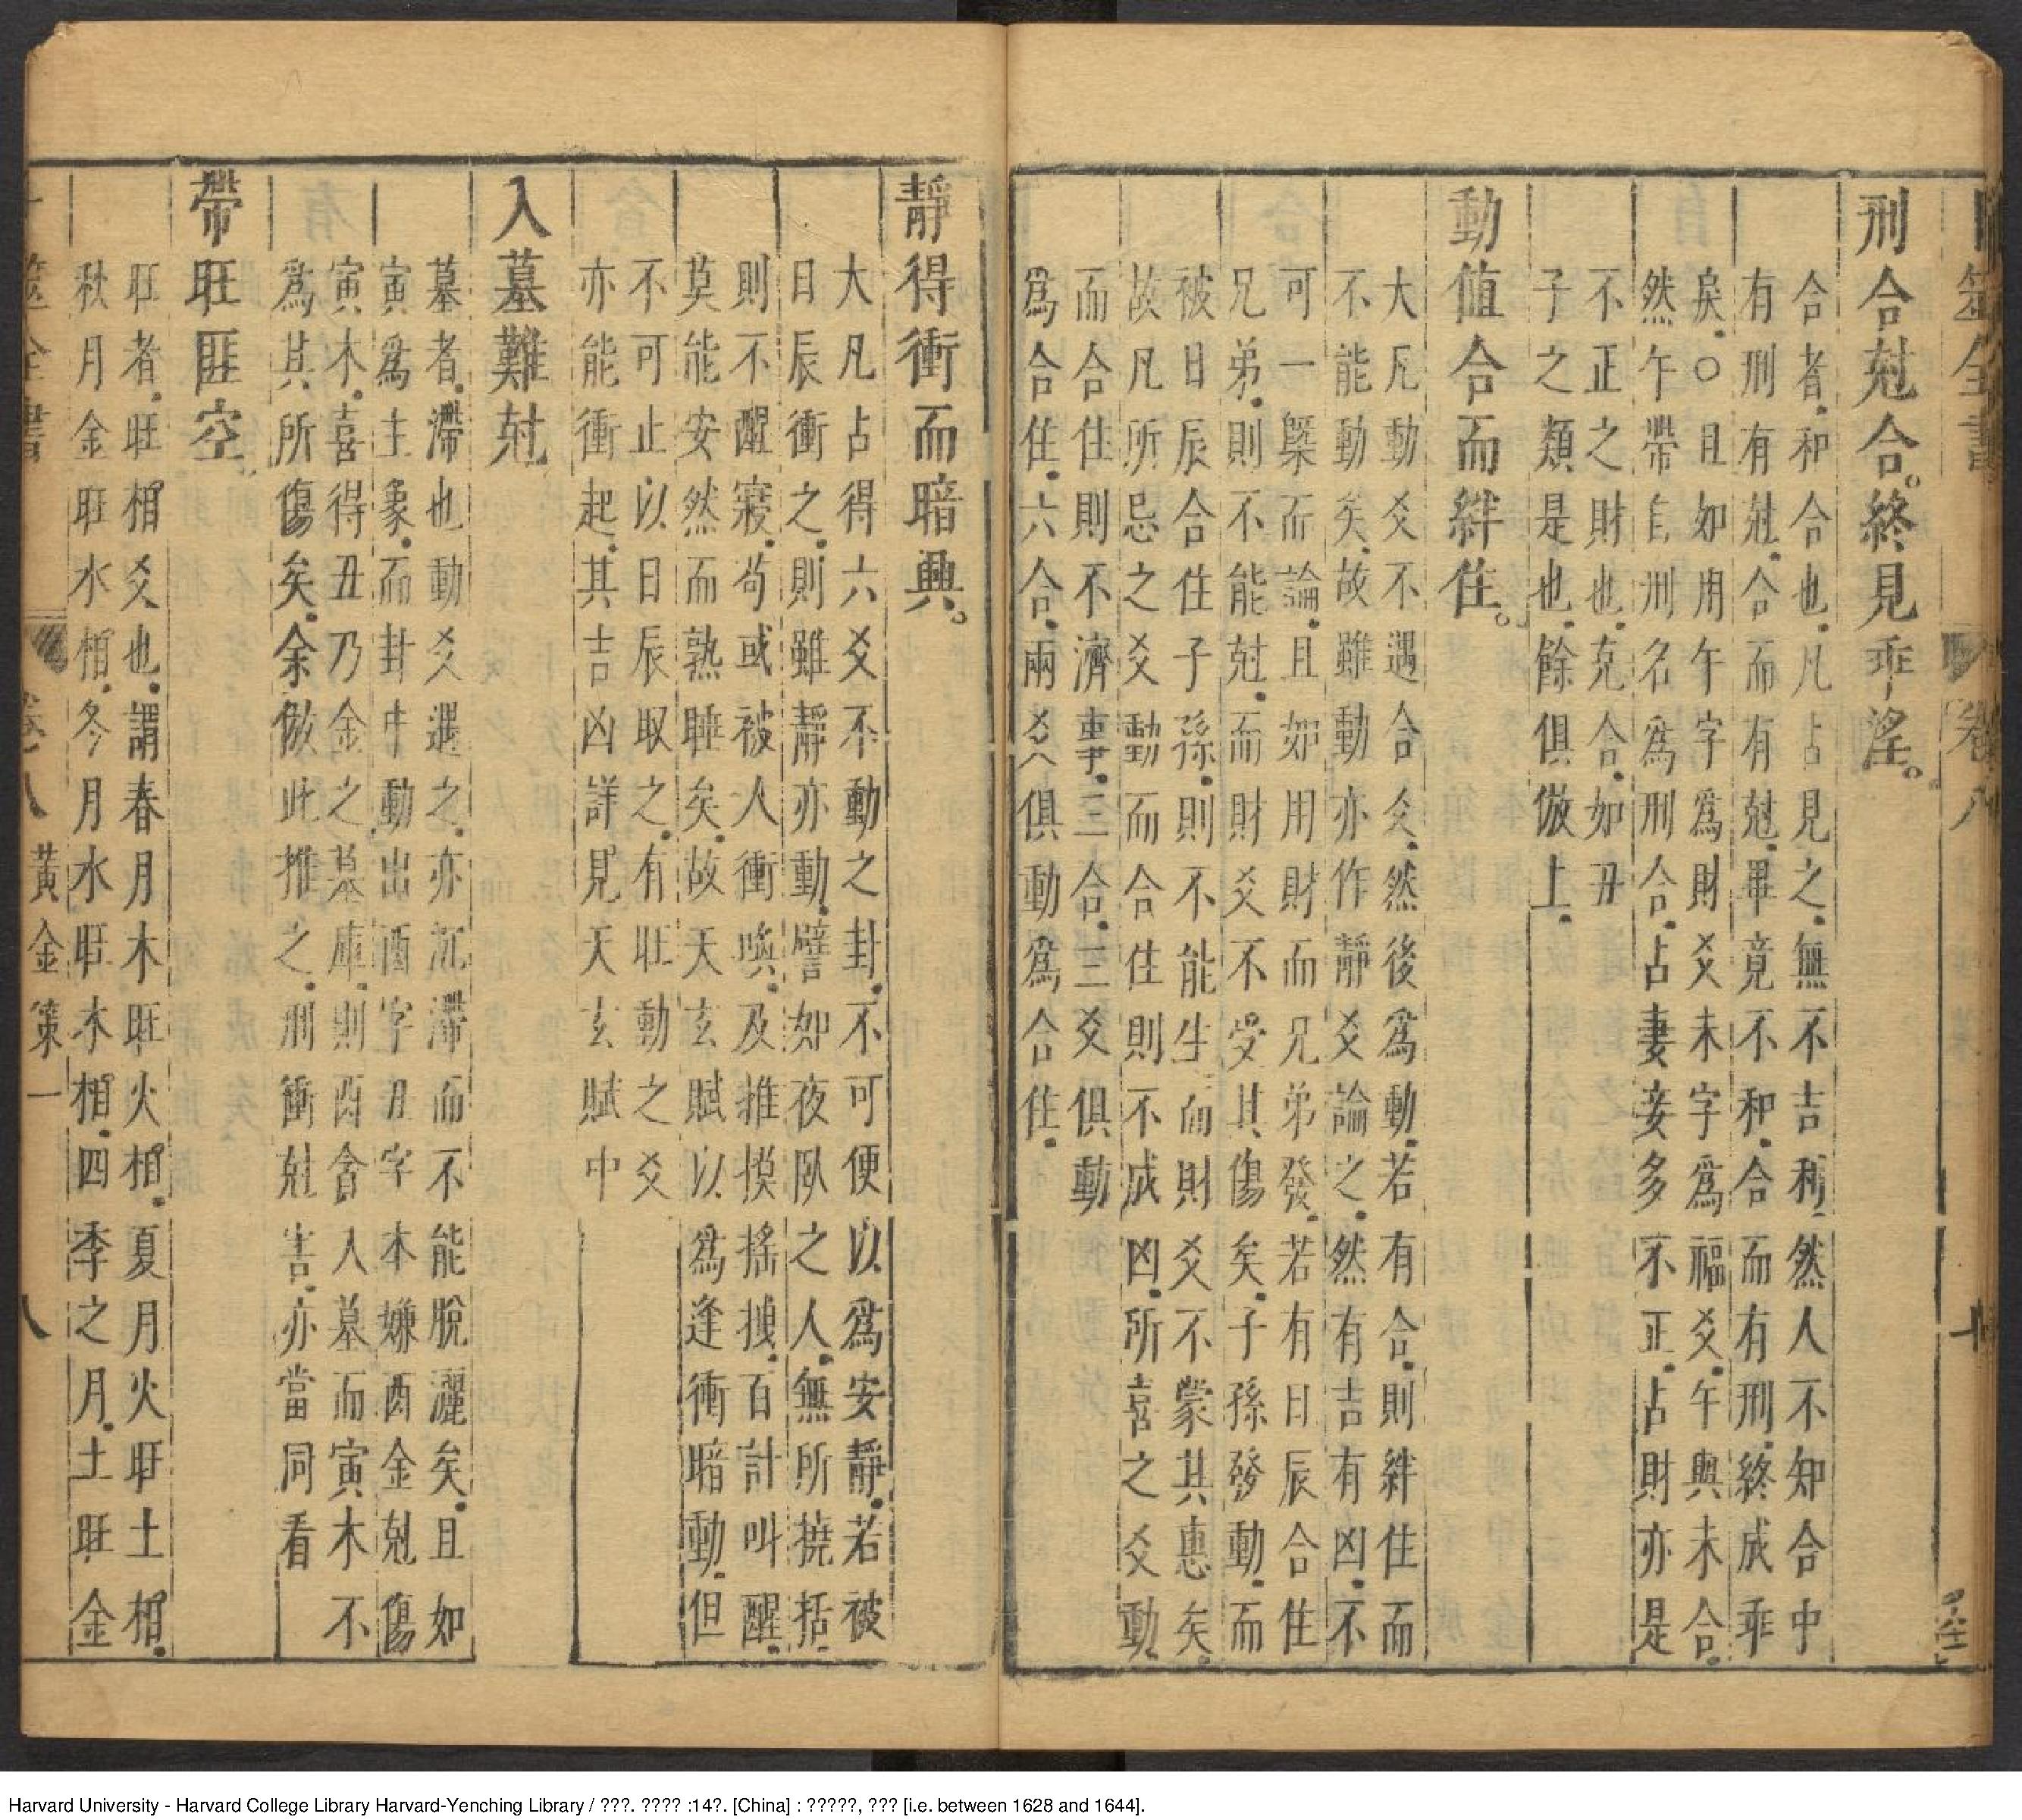 卜筮全書 卷八 十
刑合尅合。終見乖淫。
合者。和合也。凡占見之。無不吉利。然人不知合中
有刑有尅。合而有尅。畢竟不和。合而有刑。終成乖
戾。○且如用午字為財爻未字為福爻。午與未合。
然午帶自刑名為刑合。占妻妾多不正。占財亦是
不正之財也。尅合。如丑
子之類是也。餘俱倣上。
動值合而絆住。
大凡動爻不遇合爻。然後為動。若有合。則絆住而
不能動矣。故雖動亦作靜爻論之。然有吉有凶。不
可一槩而論。且如用財而兄弟發。若有日辰合住
兄弟。則不能尅。而財爻不受其傷矣。子孫發動。而
被日辰合住子孫。則不能生而財爻不蒙其惠矣。
故凡所忌之爻動而合住則不成凶。所喜之爻動
而合住則不濟事。三合。三爻俱動
為合住。六合。兩爻俱動為合住。
靜得衝而暗興。
大凡占得六爻不動之卦。不可便以為安靜。若被
日辰衝之。則雖靜亦動。譬如夜臥之人。無所撓括
則不醒寢。苟或被人衝喚。及推摸搖拽。百計叫醒。
莫能安然而熟睡矣。故天玄賦以為逢衝暗動。但
不可止以日辰取之。有旺動之爻
亦能衝起。其吉凶詳見天玄賦中
入墓難尅。
墓者。滯也動爻遇之。亦沉滯而不能脫灑矣。且如
寅為主象。而卦中動出酉字丑字本嫌酉金尅傷
寅木。喜得丑乃金之墓庫。則酉金入墓而寅木不
為其所傷矣。余倣此推之。刑衝尅害。亦當同看
帶旺匪空。
旺者。旺相爻也。謂春月木旺火相。夏月火旺土相。
秋月金旺水相。冬月水旺木相。四季之月。土旺金
卜筮全書 卷八 黃金策一 八
Harvard University - Harvard College Library Harvard-Yenching Library / ???. ???? :14?. [China] : ?????, ??? [i.e. between 1628 and 1644].